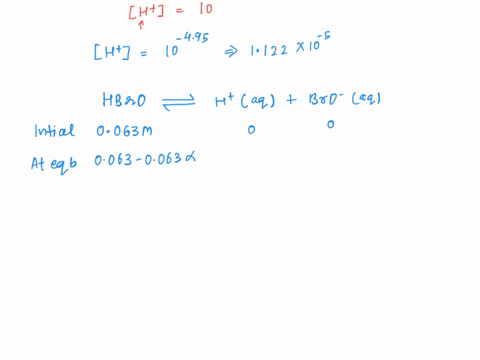 [H⁺] = 10
[H⁺] = 10^-4.95 ⇒ 1.122 × 10^-5
HBrO ⇌ H⁺ (aq) + BrO⁻ (aq)
Intial 0.063M 0 0
At eqb 0.063 - 0.063α